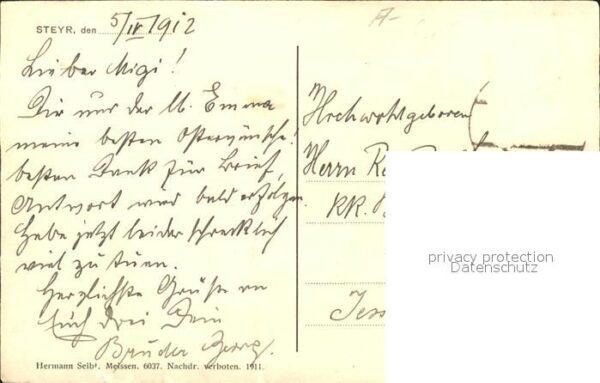 STEYR, den 5/IV 1912
Lieber Migi!
Dir und der l. Emma
meine besten Osterwünsche!
besten Dank für Brief,
Antwort wird bald erfolgen
habe jetzt leider schrecklich
viel zu tuen.
Herzlichste Grüße an
Euch drei Dein
Bruder Georg.
Hochwohlgeboren
Herrn
KK.
privacy protection
Datenschutz
Hermann Seibt, Meissen. 6037. Nachdr. verboten. 1911.